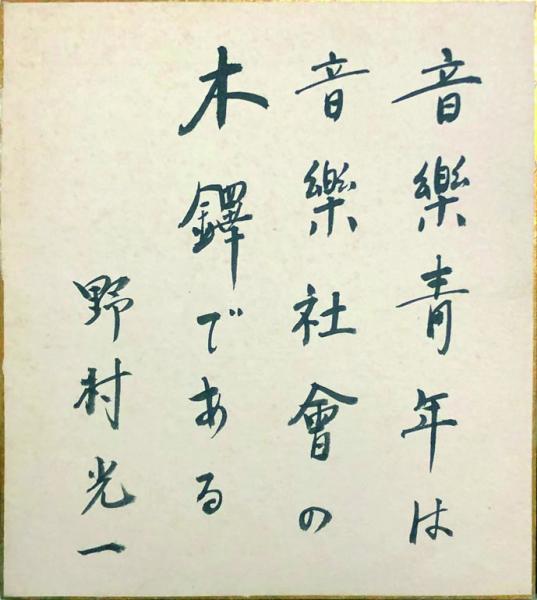 音樂青年は
音樂社會の
木鐸である
野村光一